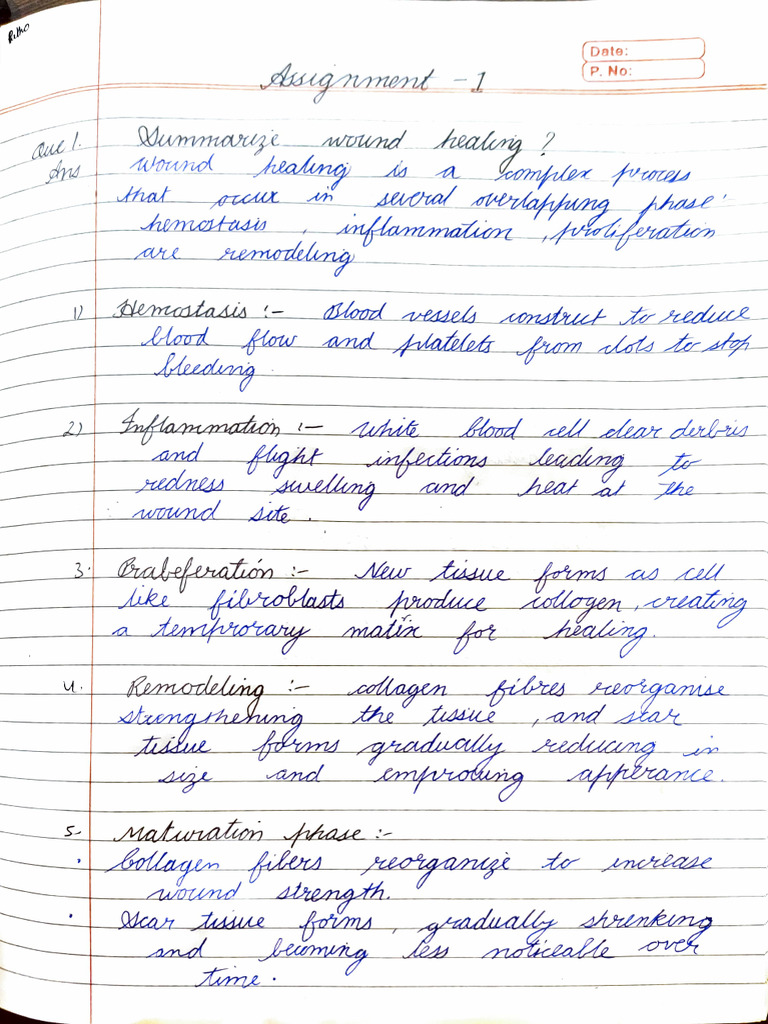 Date:
P. No:
Assignment - 1
Que 1. Summarize wound healing ?
Ans wound healing is a complex process
that occur in several overlapping phase :
hemostasis , inflammation , proliferation
are remodeling
1) Hemostasis :- Blood vessels construct to reduce
blood flow and platelets from clots to stop
bleeding
2) Inflammation :- White blood cell clear derbris
and flight infections leading to
redness swelling and heat at the
wound site .
3. Prabeferation :- New tissue forms as cell
like fibroblasts produce collogen , creating
a temprorary matix for healing .
4. Remodeling :- collagen fibres reorganise
strengthening the tissue , and scar
tissue forms gradually reducing in
size and emproving apperance .
5. Maturation phase :-
• Collagen fibers reorganize to increase
wound strength .
• Scar tissue forms , gradually shrenking
and becoming less noticeable over
time .